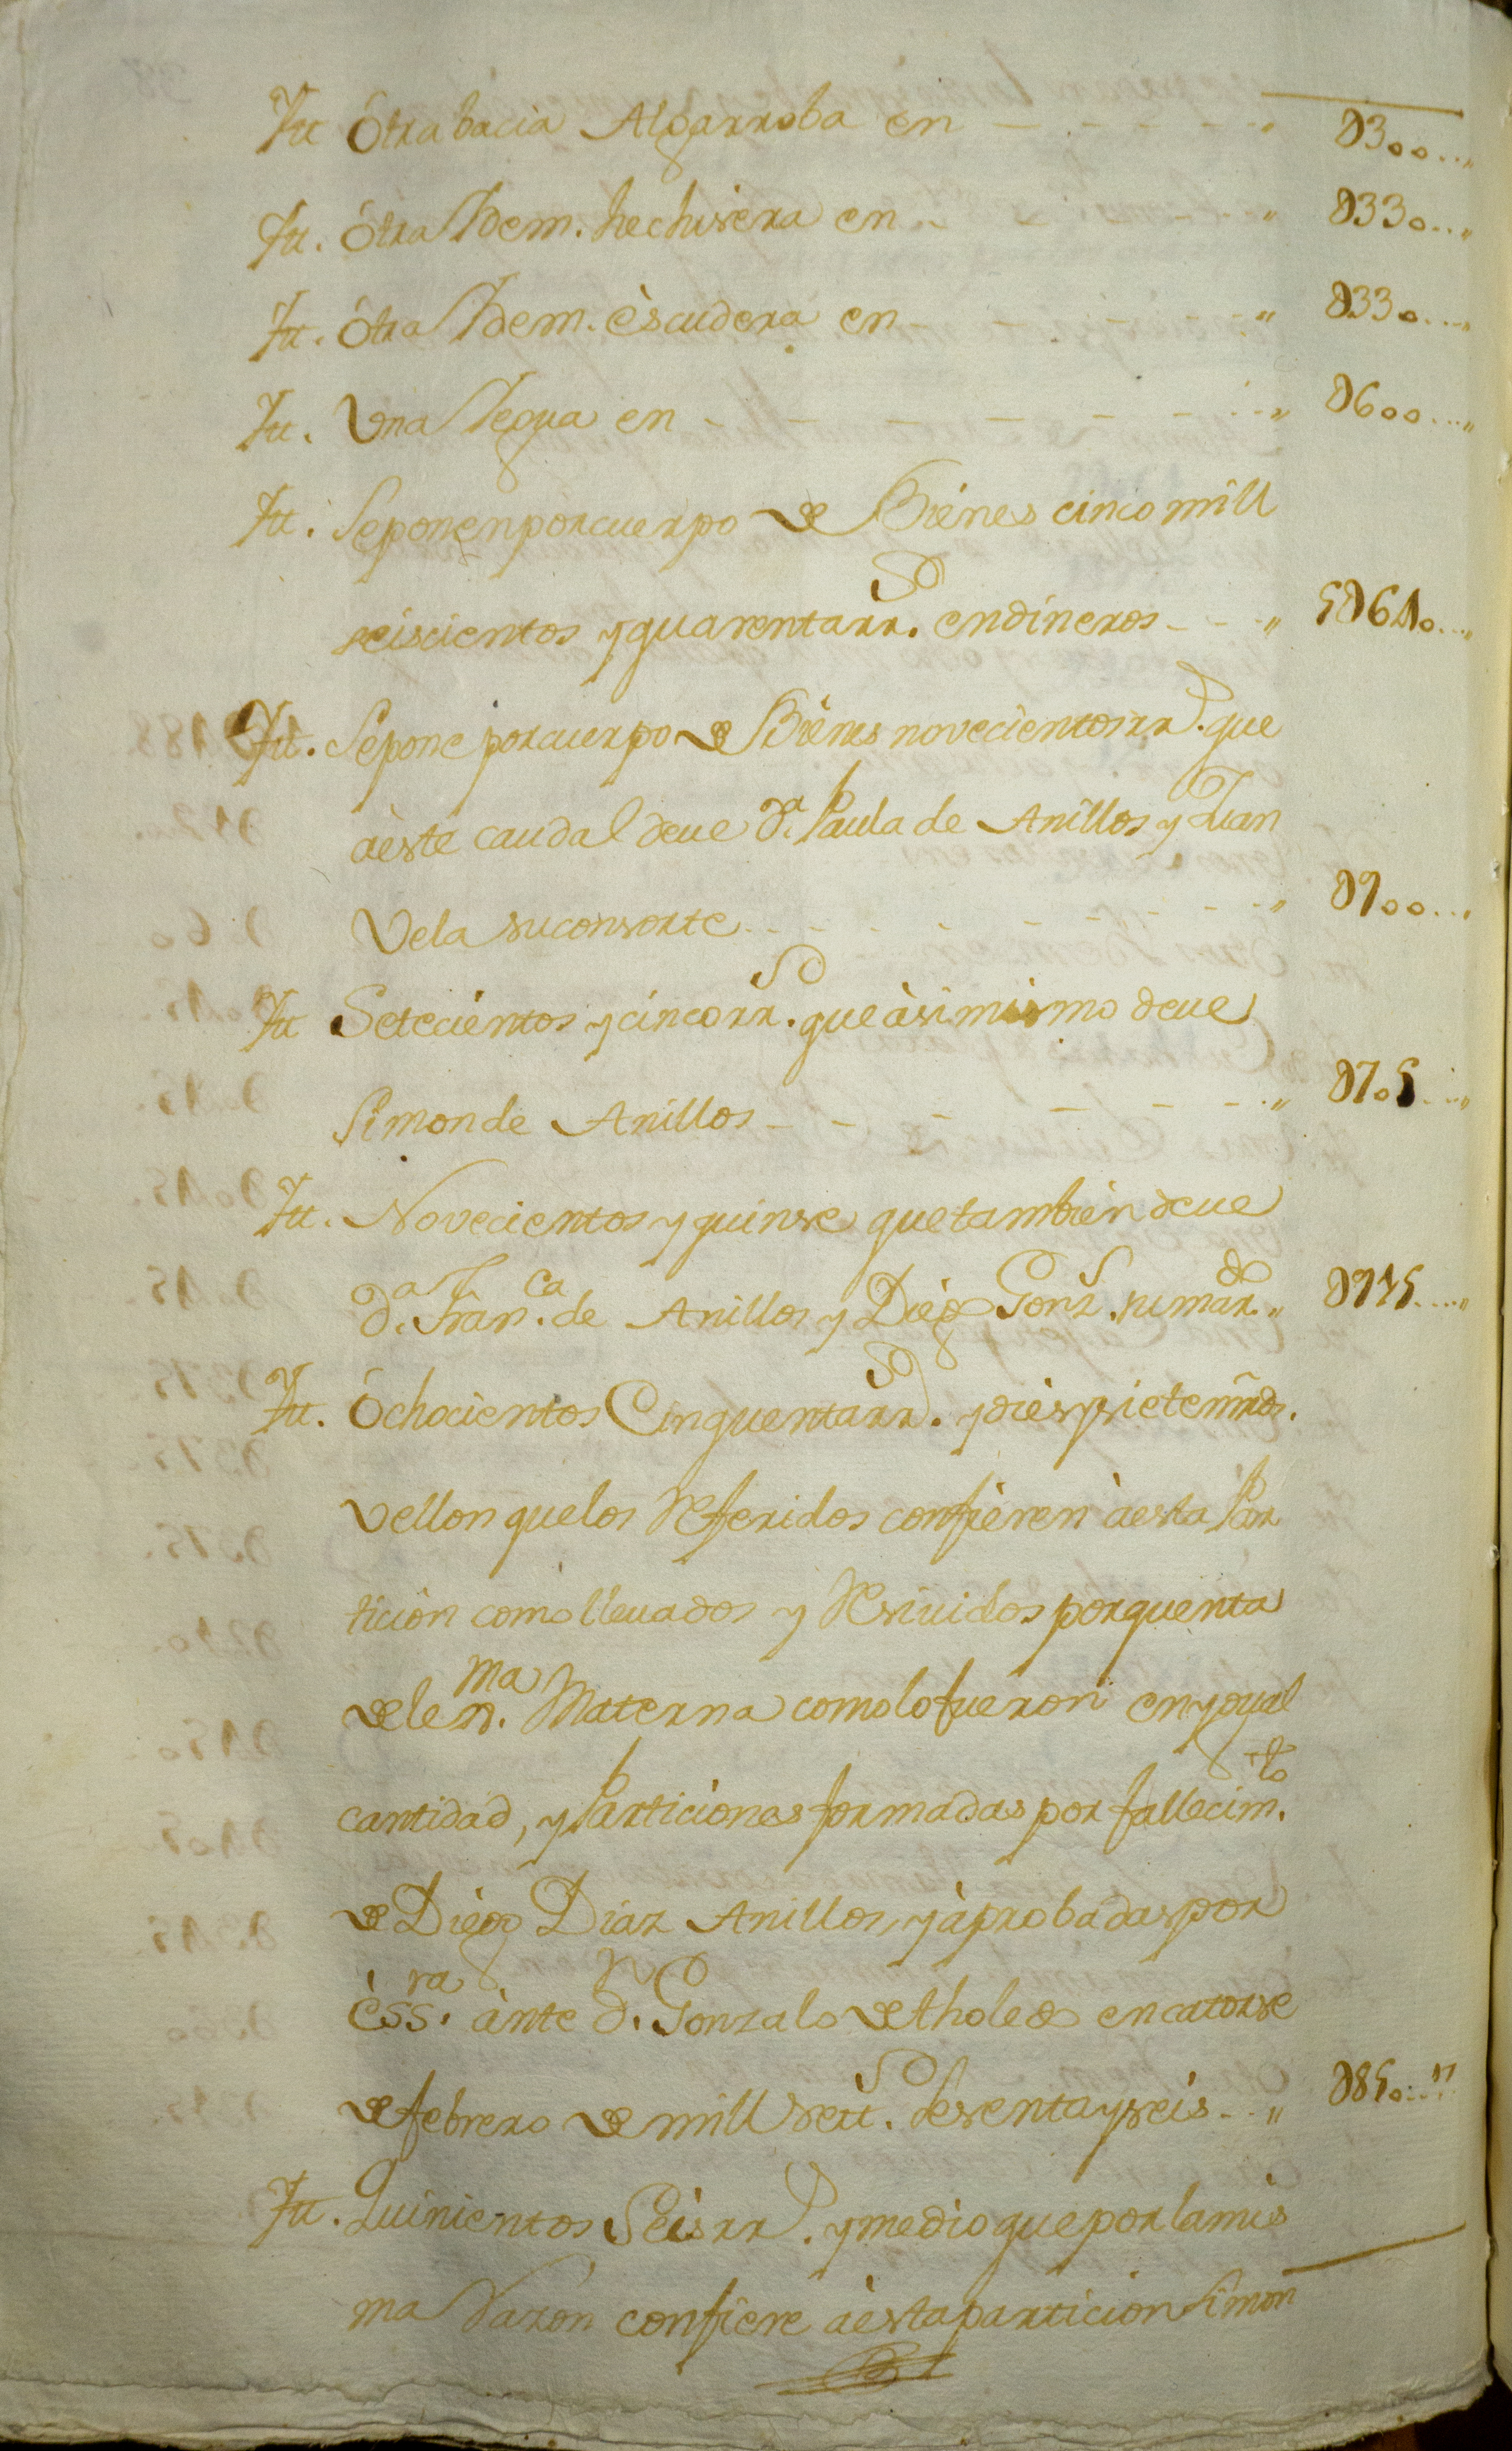 Itt Otra bacia Algarroba en - - - - - " D300...,,
Itt. Otra Idem. hechisera en - - " D330...,,
Itt. Otra Idem. èscudera en - - - - - " D330...,,
Itt. Una Yegua en - - - - - - - " D600...,,
Itt. Se ponen por cuerpo de Biènes cinco mill
seiscientos y quarenta rrs. en dineros - - - " 5D640...,,
Itt. Se pone por cuerpo de Biènes novecientos rrs. que
àeste caudal deue Da. Paula de Anillos y Juan
Vela su consorte - - - - - - - - " D900...,
Itt Setecientos y cinco rrs. que àsimismo deue
Simon de Anillos - - - - - - - " D705...,,
Itt. Novecientos y quinse que tambien deue
Da. Franca. de Anillos y Diègo Gonzs. su mardo. " D915....,,
Itt. Ochocientos Cinquenta rrs. y dies y siete mrds.
Vellon que los Referidos confièren àesta Par
ticiòn como lleuados y Resiuidos por quenta
de lexma. Materna como lo fueron en ygual
cantidad, y Particiones formadas por fallecimto.
de Diègo Diaz Anillos, y àprobadas por
èssra. ànte Dn. Gonzalo de tholedo en catorse
de febrero de mill settos. sesenta y seis - - " D850...17
Itt. Quinientos Seis rrs. y medio que por la mis
ma Razon confiere àesta particion Simon